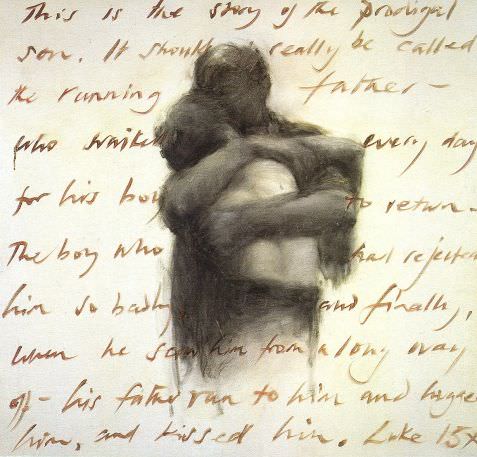 This is the story of the prodigal
son. It should really be called
the running father –
who waited every day
for his boy to return –
The boy who had rejected
him so badly, and finally,
when he saw him from a long way
off – his father ran to him and hugged
him, and kissed him. Luke 15